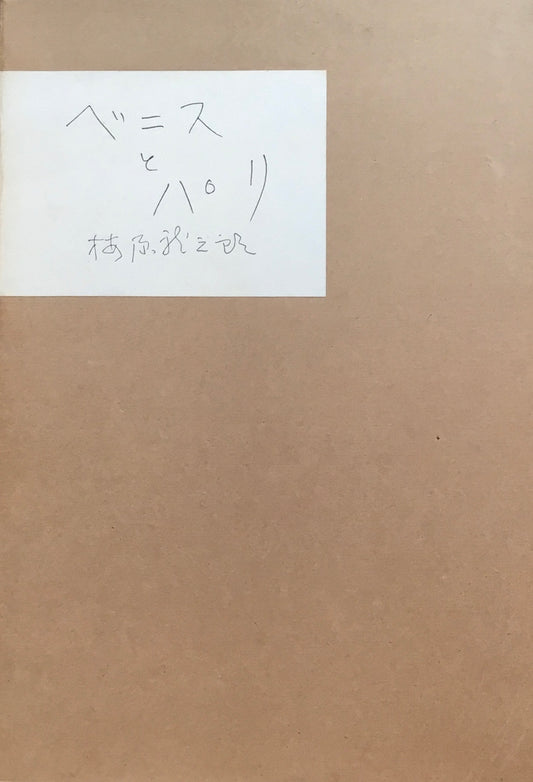 ベニス
と
パリ
梅原龍三郎